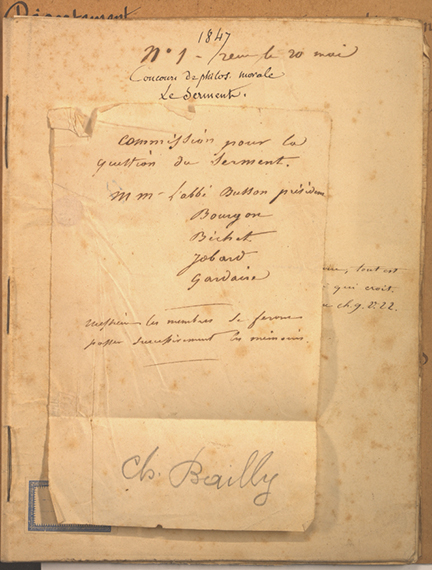 Département
1847
N° 1 - reçu le 20 mai
Concours de philos. morale
Le Serment.
Commission pour la
question du Serment.
M m - L'abbé Busson présiden
Bourgon
Béchet
Jobard
Gardaire
tout est
qui croit.
ch. 9. v. 22.
Messieurs les membres se feront
passer successivement les mémoires
Ch. Bailly